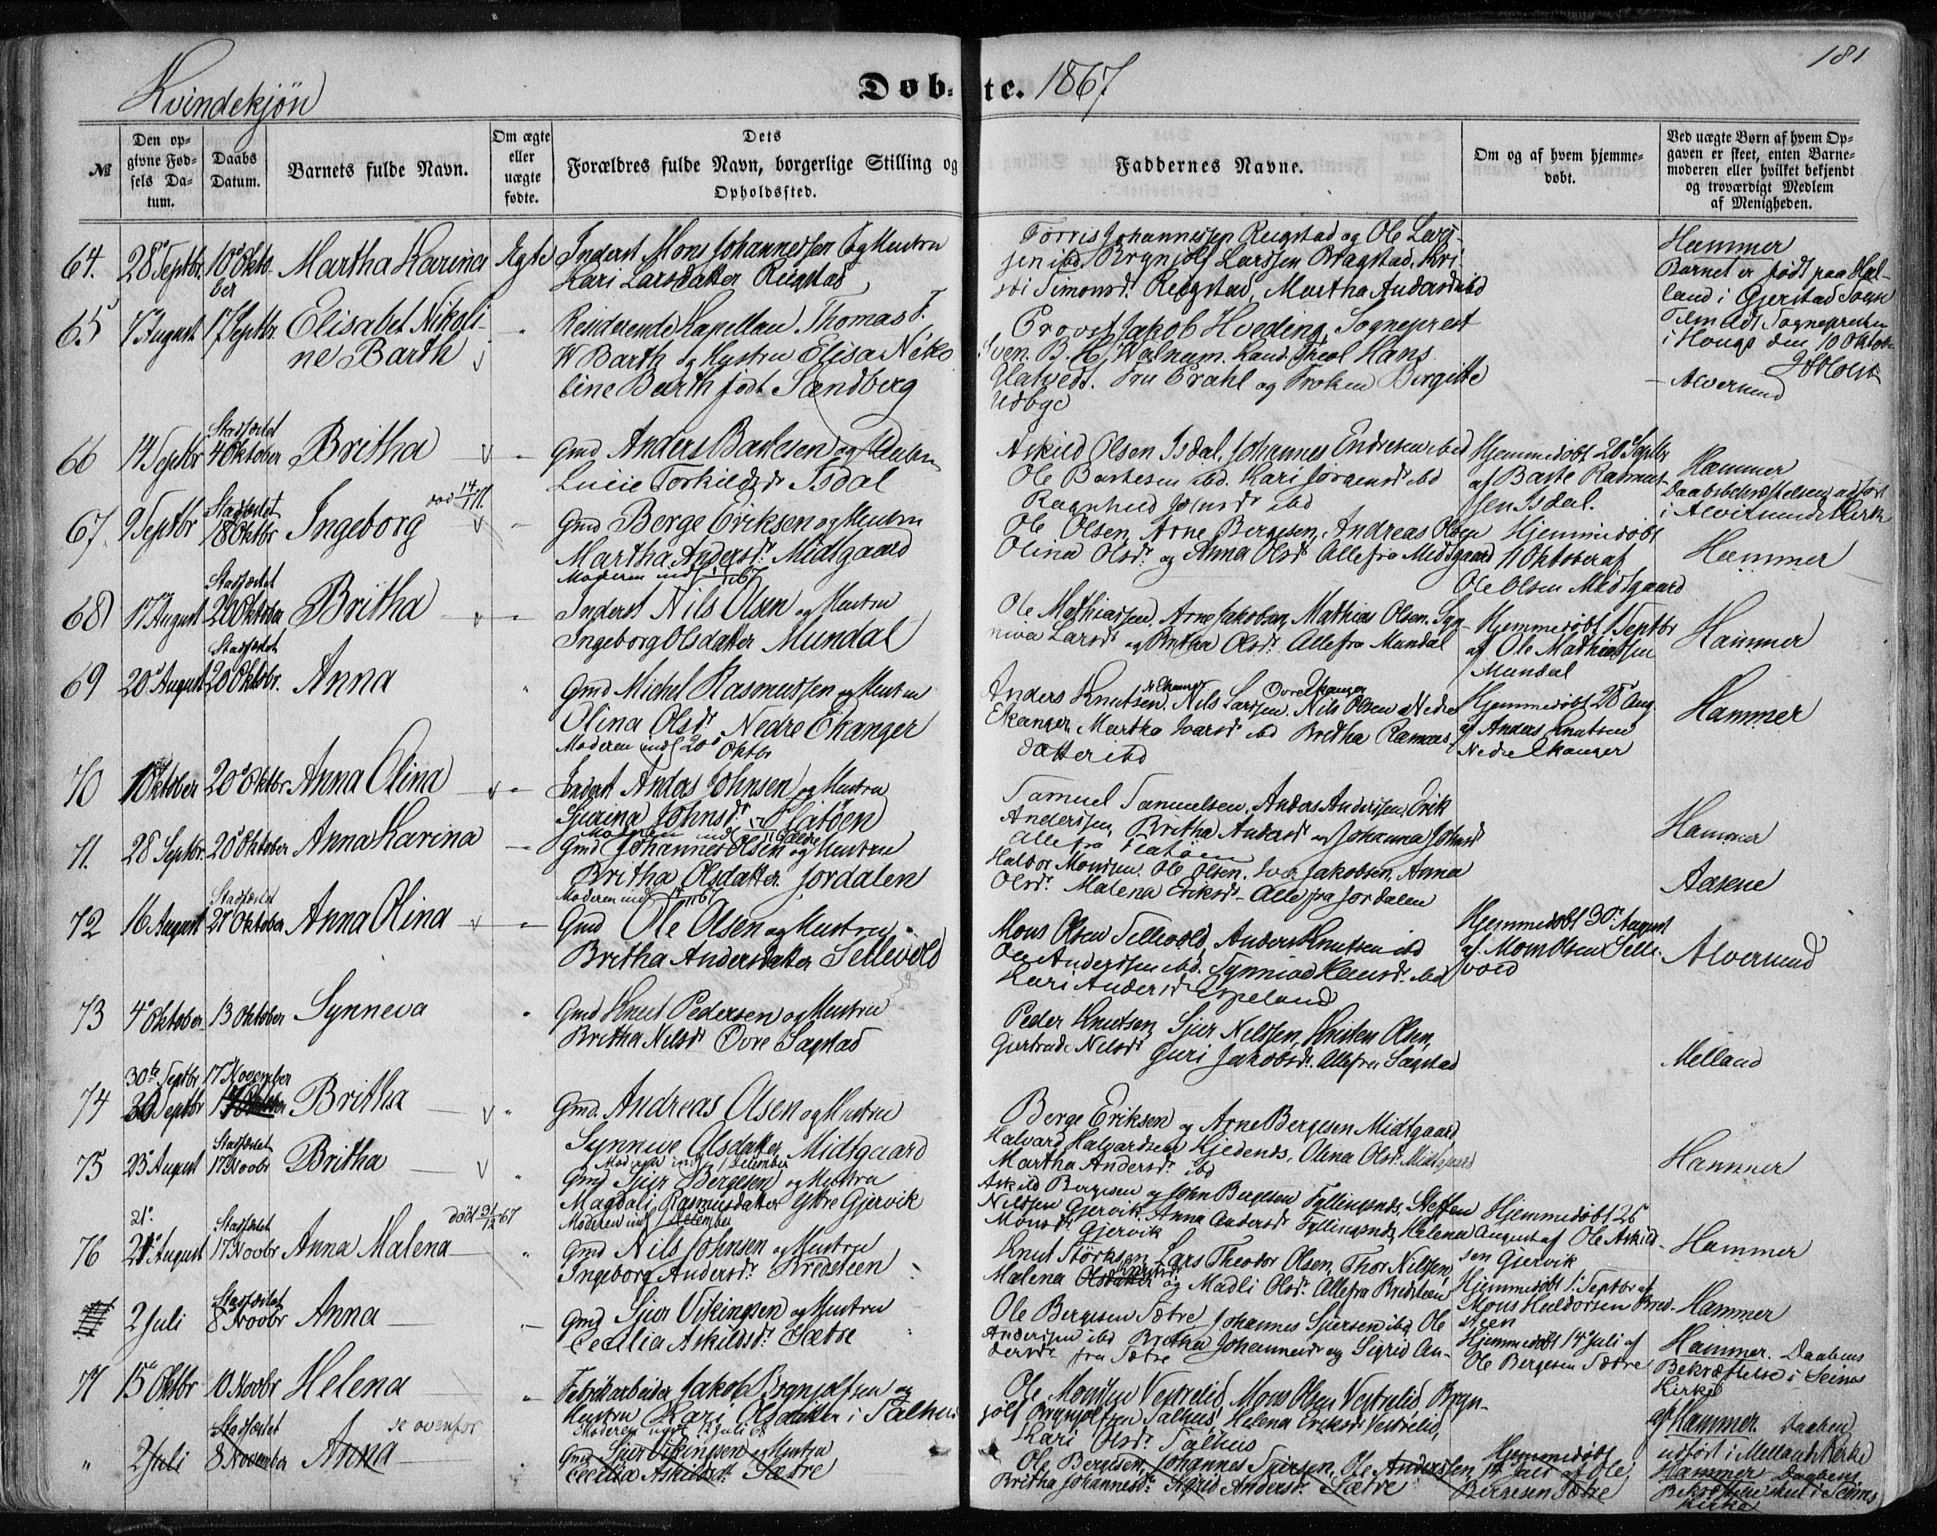 181
Kvindekjøn
Døbte. 1867
№
Den opgivne Fødsels Datum.
Daabs Datum.
Barnets fulde Navn.
Om ægte eller uægte fødte.
Dets Forældres fulde Navn, borgerlige Stilling og Opholdssted.
Faddernes Navne.
Om og af hvem hjemmedøbt.
Ved uægte Børn af hvem Opgaven er skeet, enten Barnemoderen eller hvilket bekjendt og troværdigt Medlem af Menigheden.
64. 28de Septbr. 10de Oktober Martha Karina Ægte Inderst Mons Johannessen og Hustru
Kari Larsdatter Reigstad
Torris Johannessen Reigstad og Ole Larssen ibd. Brynjolf Larssen Bragstad,
Simonsd. Reigstad, Martha Andersd. ibd
Hammer
Barnet er født paa
land i Gjerstad Sogn
i Hougs den 10 Oktober
65 7 August 17 Septbr. Elisabet Nikoline Barth
Residerende Kapellan Thomas F.
W Barth og Hustru Elisa Nikoline Barth født Sandberg
Provst Jakob Hveding, Sogneprest
B. H. Walnum, Kand. Theol Hans
Hatvedt. Fru Prahl og Frøken Birgitte
Udbye
Alversund
66 14 Septbr Stadfæstet 4 Oktober Britha
Gmd Anders Baktesen og Hustru
Lucie Torkildsd. Isdal
Askild Olsen Isdal, Johannes Endresen ibd
Ole Bartesen ibd. Kari Jørgensd. ibd
Ragnhild Johnsd. ibd
Hjemmedøbt 20de Septbr
af Baste Rasmussen Isdal.
Hammer
Daabsbekræftelsen udført
i Alversunds Kirke
67. 9 Septbr Stadfæstet 18 Oktbr Ingeborg
Gmd Berge Eriksen og Hustru
Martha Andersd. Midtgaard
Ole Olsen, Arne Bergesen, Andreas Olsen
Olina Olsd. og Anna Olsd. Alle fra Midtgaard
Hjemmedøbt
11 Oktober af
Ole Olsen Midtgaard
Hammer
68 17 August Stadfæstet 20 Oktober Britha
Inderst Nils Olsen og Hustru
Ingeborg Olsdatter Mundal
Ole Mathiassen, Arne Jakobsen, Mathias Olsen, Synneva Larsd. og Britha Olsd. Alle fra Mundal
Hjemmedøbt 1 Septbr
af Ole Mathiassen
Mundal
Hammer
69 20de August Stadfæstet 20 Oktbr. Anna
Gmd Michel Rasmussen og Hustru
Olina Olsd. Nedre Ekanger
Moderen indl 20de Oktbr
Anders Knutsen, Nils Larssen, Nils Olsen Nedre
Ekanger, Martha Ivarsd. ibd Britha Rasmusdatter ibd
Hjemmedøbt 28de Aug
af Anders Knutsen
Nedre Ekanger
Hammer
70 1 Oktober 20de Oktbr Anna Olina
Inderst Anders Johnsen og Hustru
Sjurina Johnsd. Flatøen
Samuel Samuelsen, Anders Anderssen, Erik
Anderssen, Britha Andersd. og Johanna Johnsd
alle fra Flatøen
Hammer
71. 28 Septbr. 20de Oktober Anna Karina
Gmd Johannes Olsen og Hustru
Britha Olsdatter Jordalen
Haldor Monssen, Ole Olsen, Ivar Jakobsen, Anna
Olsd. Malena Eriksd. Alle fra Jordalen
Aasene
72 16 August Stadfæstet 27 Oktober Anna Olina
Gmd Ole Olsen og Hustru
Britha Andersdatter Sellevold
Mons Olsen Sellevold, Anders Knutsen ibd
Ole Anderssen ibd. Synniva Hansd. ibd
Kari Andersd. Espeland
Hjemmedøbt 30te August
af Mons Olsen Sellevold
Alversund
73 4de Oktober 13 Oktober Synneva
Gmd Knut Pedersen og Hustru
Britha Nilsd. Øvre Sagstad
Peder Knutsen, Sjur Nilssen, Knut Olsen,
Gjertrud Nilsd. Guri Jakobsd. Alle fra Sagstad
Melland
74 30te Septbr 17 November Britha
Gmd. Andreas Olsen og Hustru
Synneve Olsdatter Midtgaard
Moderen indl 1 December
Berge Eriksen og Arne Bergesen Midtgaard
Halvard Halvardsen Hjedenes, Olina Olsd. Midtgaard
Martha Andersd. ibd
Hammer
75 23de August Stadfæstet 17 Novbr Britha
Gmd Sjur Bergesen og Hustru
Magdali Rasmusdatter Ystre Gjervik
Moderen indl 1 December
Askild Bergesen og John Bergesen Fyllingsnes, Steffen
Nilssen Gjervik, Anna Andersd. Fyllingsnes, Helena
Monsd. Gjervik
Hjemmedøbt 26
August af Ole Askildsen Gjervik
Hammer
76 21de August Stadfæstet 17 Novbr Anna Malena død 31/12 67
Gmd Nils Johnsen og Hustru
Ingeborg Andersd. Bredsteen
Knut Størksen, Lars Theodor Olsen, Thor Nilssen,
Malena og Madli Olsd. Alle fra Bredsteen
Hjemmedøbt 1 Septbr af
Mons Haldorsen Bredsteen
Hammer
2 Juli Stadfæstet 8 Novbr Anna
Gmd Sjur Vikingsen og Hustru
Cecilia Askildsd. Sætre
Ole Bergesen Sætre, Johannes Sjursen ibd, Ole
Anderssen ibd Britha Johannesd. og Sigrid Andersd. fra Sætre
Hjemmedøbt 14de Juli af
Ole Bergesen Sætre
Hammer. Daabens
Bekræftelse i Seims
Kirke
77 15de Oktbr 10 Novbr Helena
Fabrikarbeider Jakob Brynjolfsen og
Hustru Kari Olsdatter i Salhus
Ole Monsen Vestrelid, Mons Olsen Vestrelid, Brynjolf Brynjolfsen Salhus, Helena Eriksd. Vestrelid,
Kari Olsd. Salhus
Hammer. Daaben
udført i Mellands Kirke
" 2 Juli Stadfæstet 8 November Anna se ovenfor
Gmd Sjur Vikingsen og Hustru
Cecilia Askildsd. Sætre
Ole Bergesen, Johannes Sjursen, Ole Anderssen,
Britha Johannesd. Sigrid Andersd. Sætre
Hjemmedøbt
14 Juli af Ole
Bergesen Sætre
Hammer Daabens
Bekræftelse skeet i Seims
Kirke